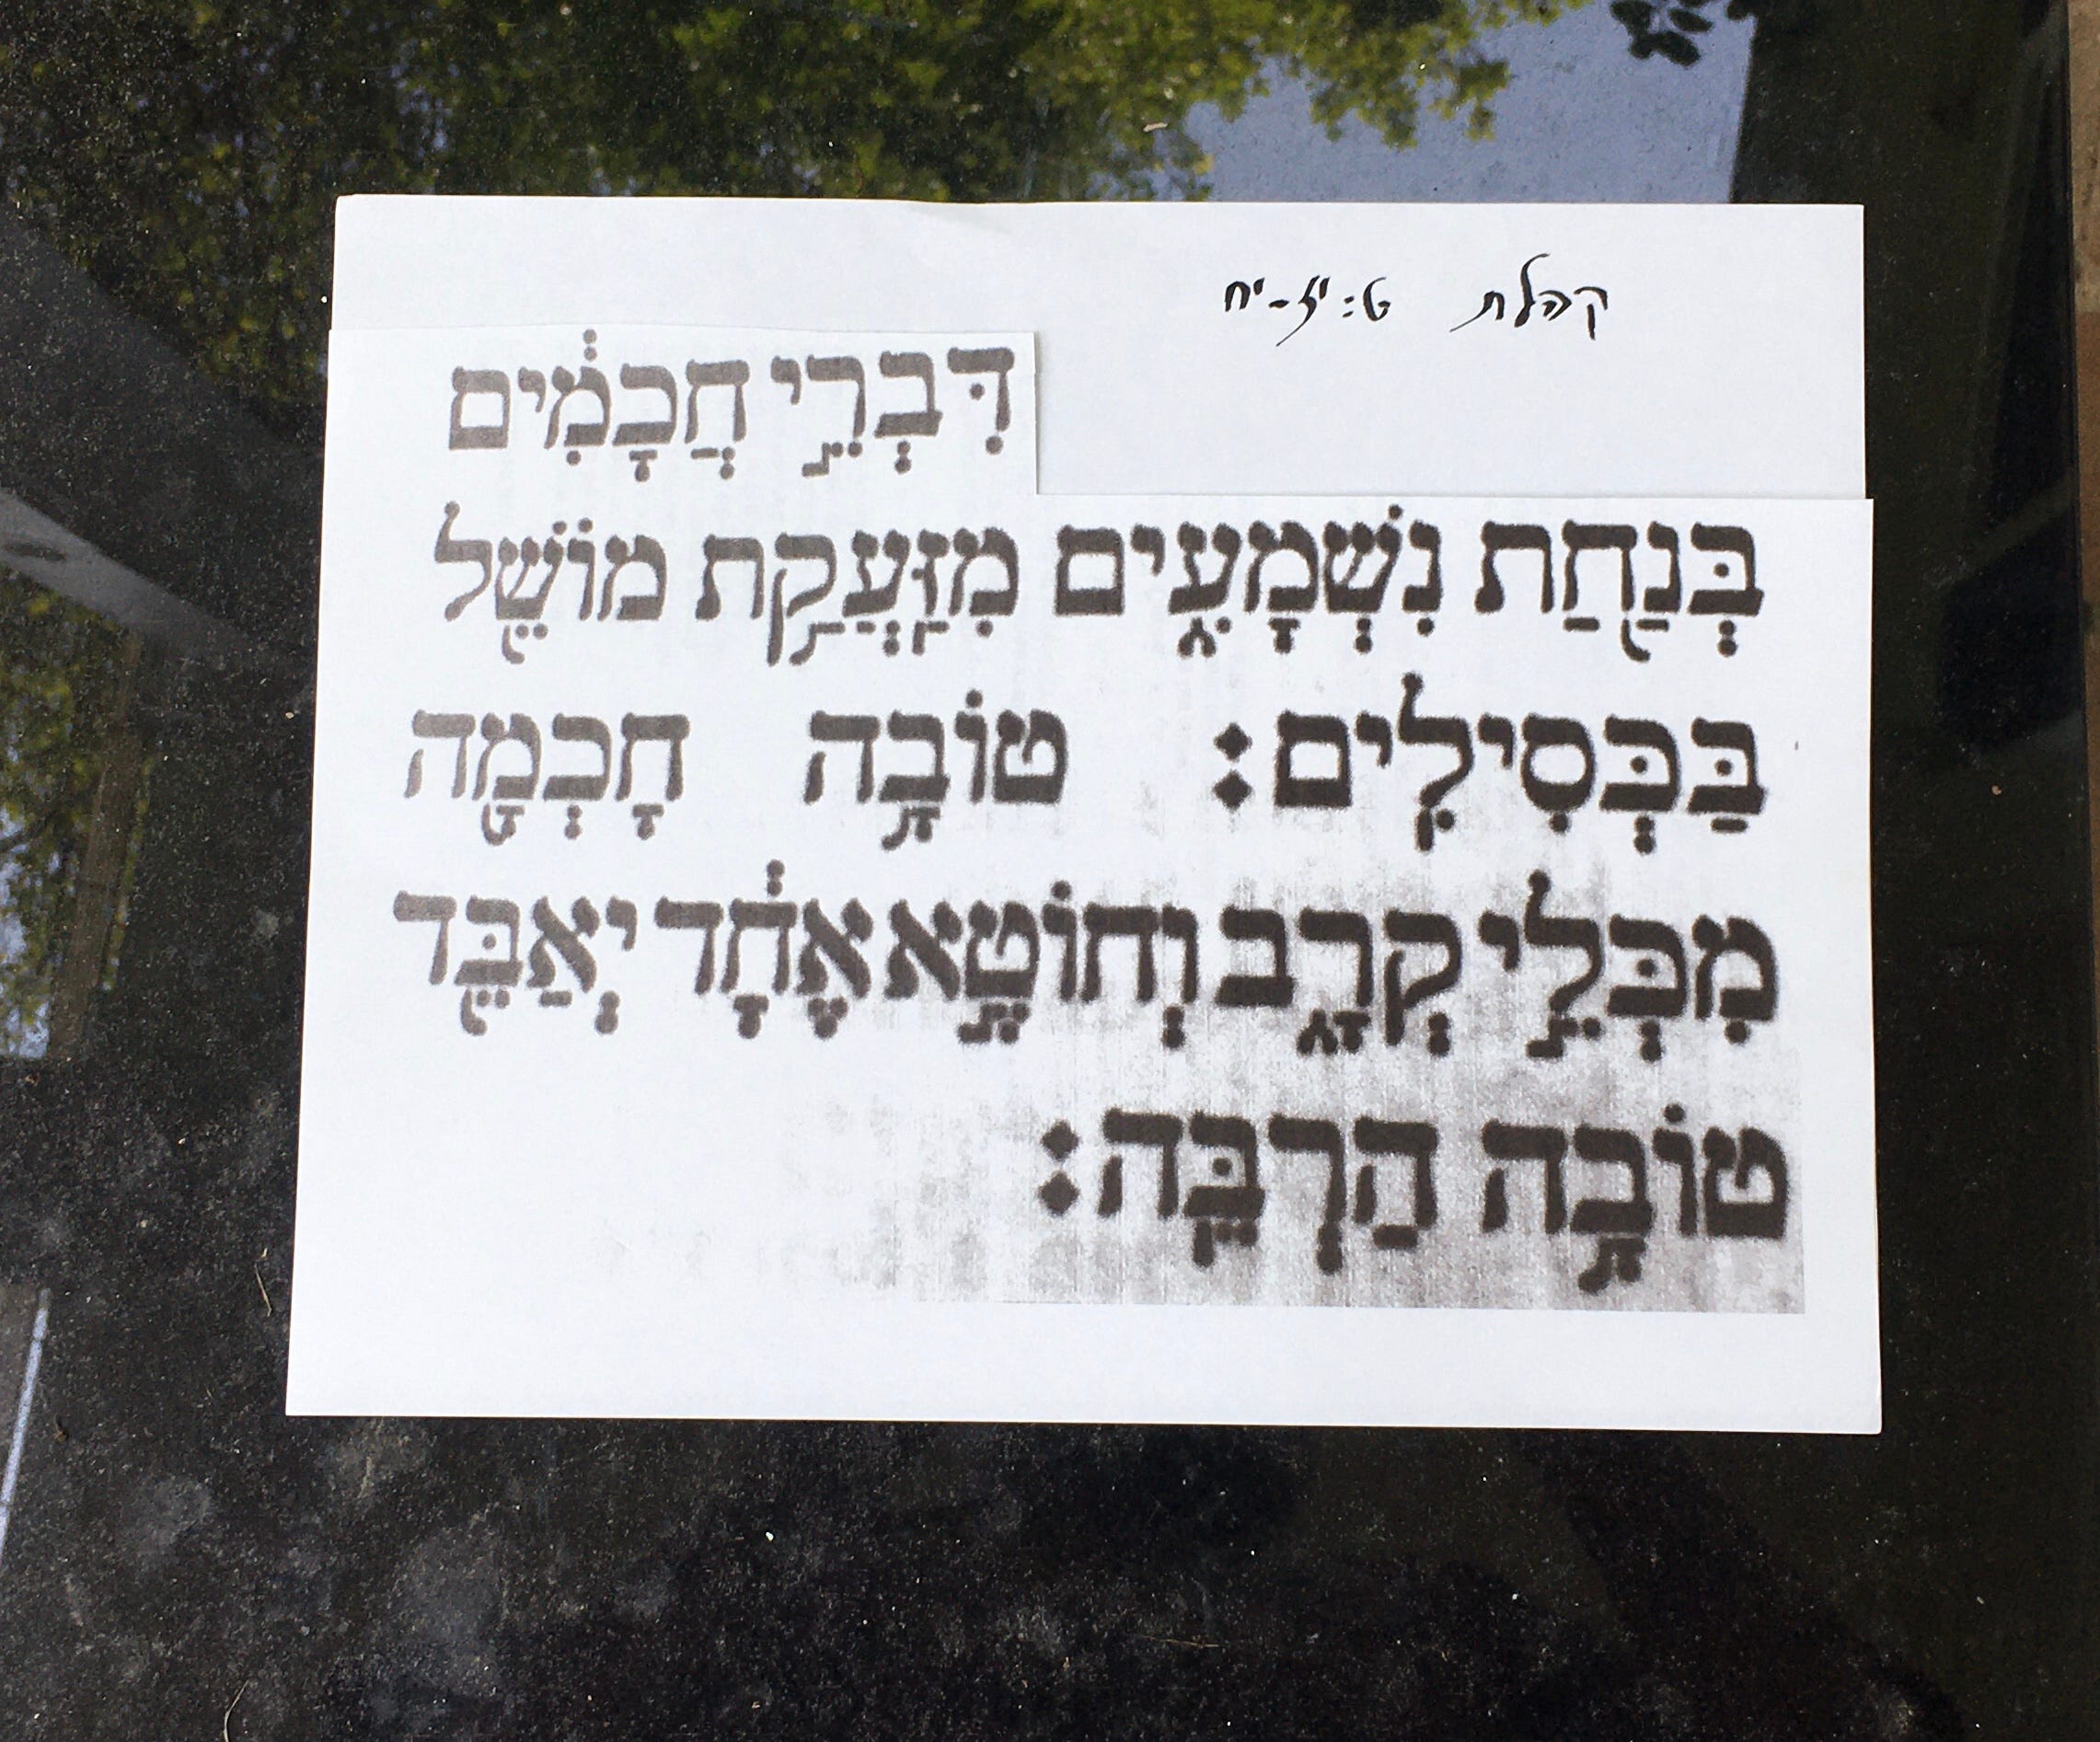 קהלת ט:יז-יח
דִּבְרֵ֣י חֲכָמִ֔ים
בְּנַ֖חַת נִשְׁמָעִ֑ים מִזַּעֲקַ֥ת מוֹשֵׁ֖ל
בַּכְּסִילִֽים׃ טוֹבָ֥ה חׇכְמָ֖ה
מִכְּלֵ֣י קְרָ֑ב וְחוֹטֶ֣א אֶחָ֔ד יְאַבֵּ֖ד
טוֹבָ֥ה הַרְבֵּֽה׃